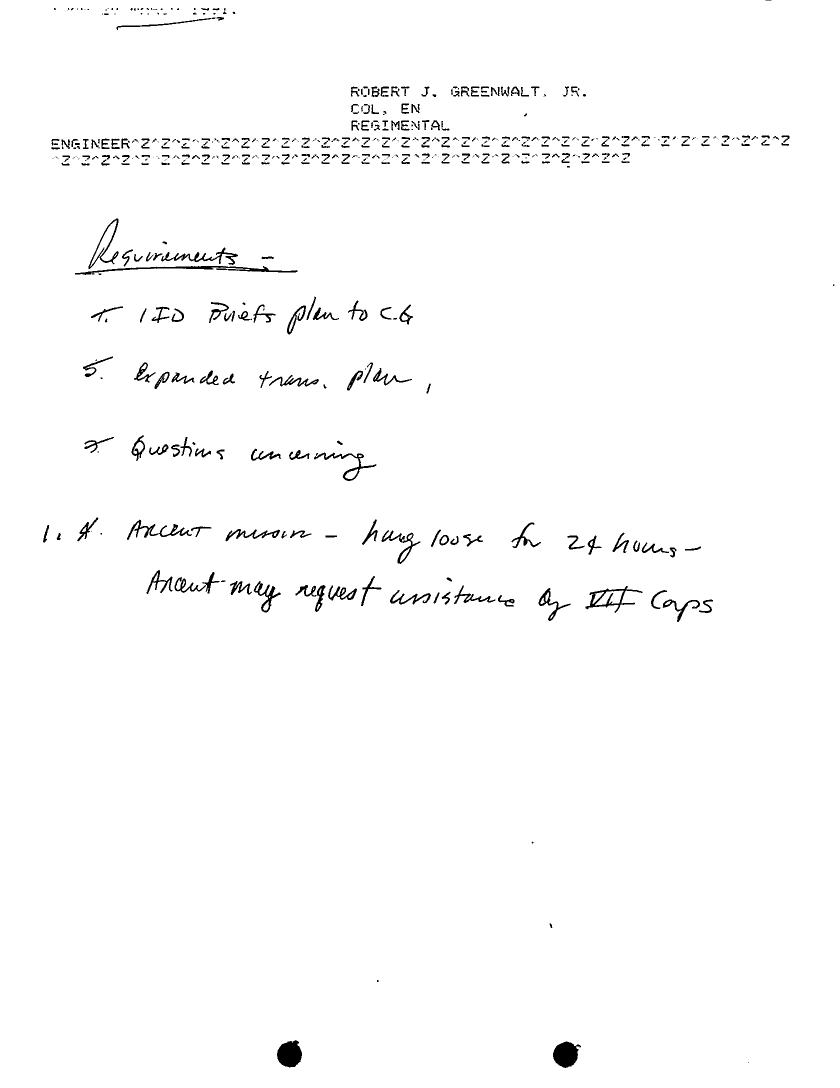 MARCH 1991.
ROBERT J. GREENWALT, JR.
COL, EN
REGIMENTAL
ENGINEER^Z^Z^Z^Z^Z^Z^Z^Z^Z^Z^Z^Z^Z^Z^Z^Z^Z^Z^Z^Z^Z^Z^Z^Z^Z^Z^Z^Z^Z^Z^Z^Z^Z
^Z^Z^Z^Z^Z^Z^Z^Z^Z^Z^Z^Z^Z^Z^Z^Z^Z^Z^Z^Z^Z^Z^Z^Z^Z^Z^Z^Z^Z
Requirements -
1ID Briefs plan to C.G
5. Expanded trans. plan,
Questions concerning
1. A. ARCENT mission - hang loose for 24 hours -
Arcent may request assistance by VII Corps